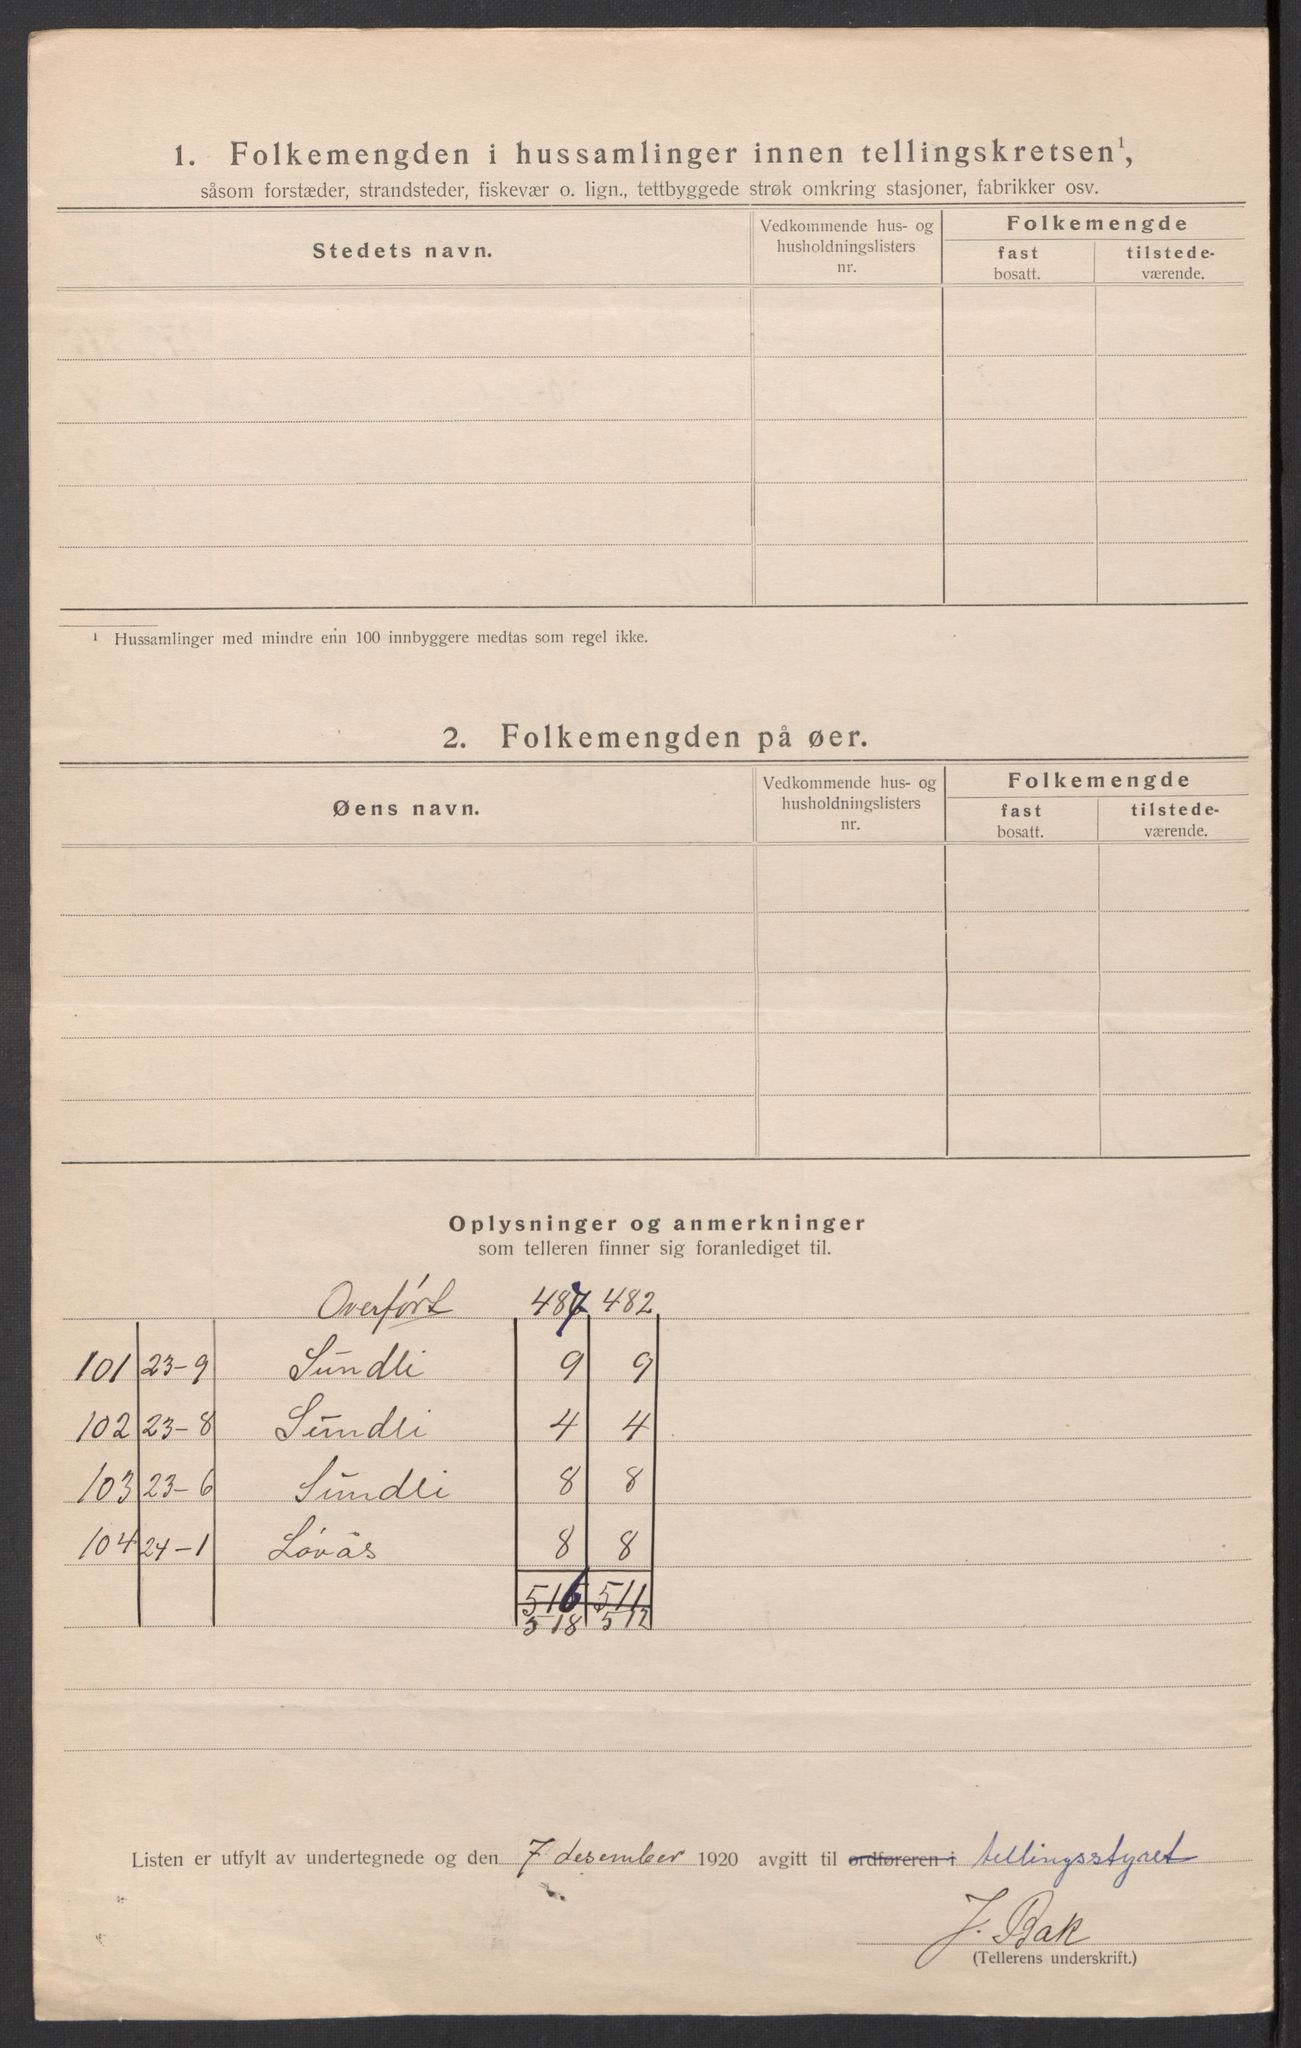 1. Folkemengden i hussamlinger innen tellingskretsen¹,
såsom forstæder, strandsteder, fiskevær o. lign., tettbyggede strøk omkring stasjoner, fabrikker osv.
Stedets navn.
Vedkommende hus- og
husholdningslisters
nr.
Folkemengde
fast
bosatt.
tilstede-
værende.
¹ Hussamlinger med mindre enn 100 innbyggere medtas som regel ikke.
2. Folkemengden på øer.
Øens navn.
Vedkommende hus- og
husholdningslisters
nr.
Folkemengde
fast
bosatt.
tilstede-
værende.
Oplysninger og anmerkninger
som telleren finner sig foranlediget til.
Overført 487 482
101 23-9 Sundli 9 9
102 23-8 Sundli 4 4
103 23-6 Sundli 8 8
104 24-1 Løvås 8 8
516 511
518 512
Listen er utfylt av undertegnede og den 7 desember 1920 avgitt til ordføreren i tellingsstyret
J. Bak
(Tellerens underskrift.)